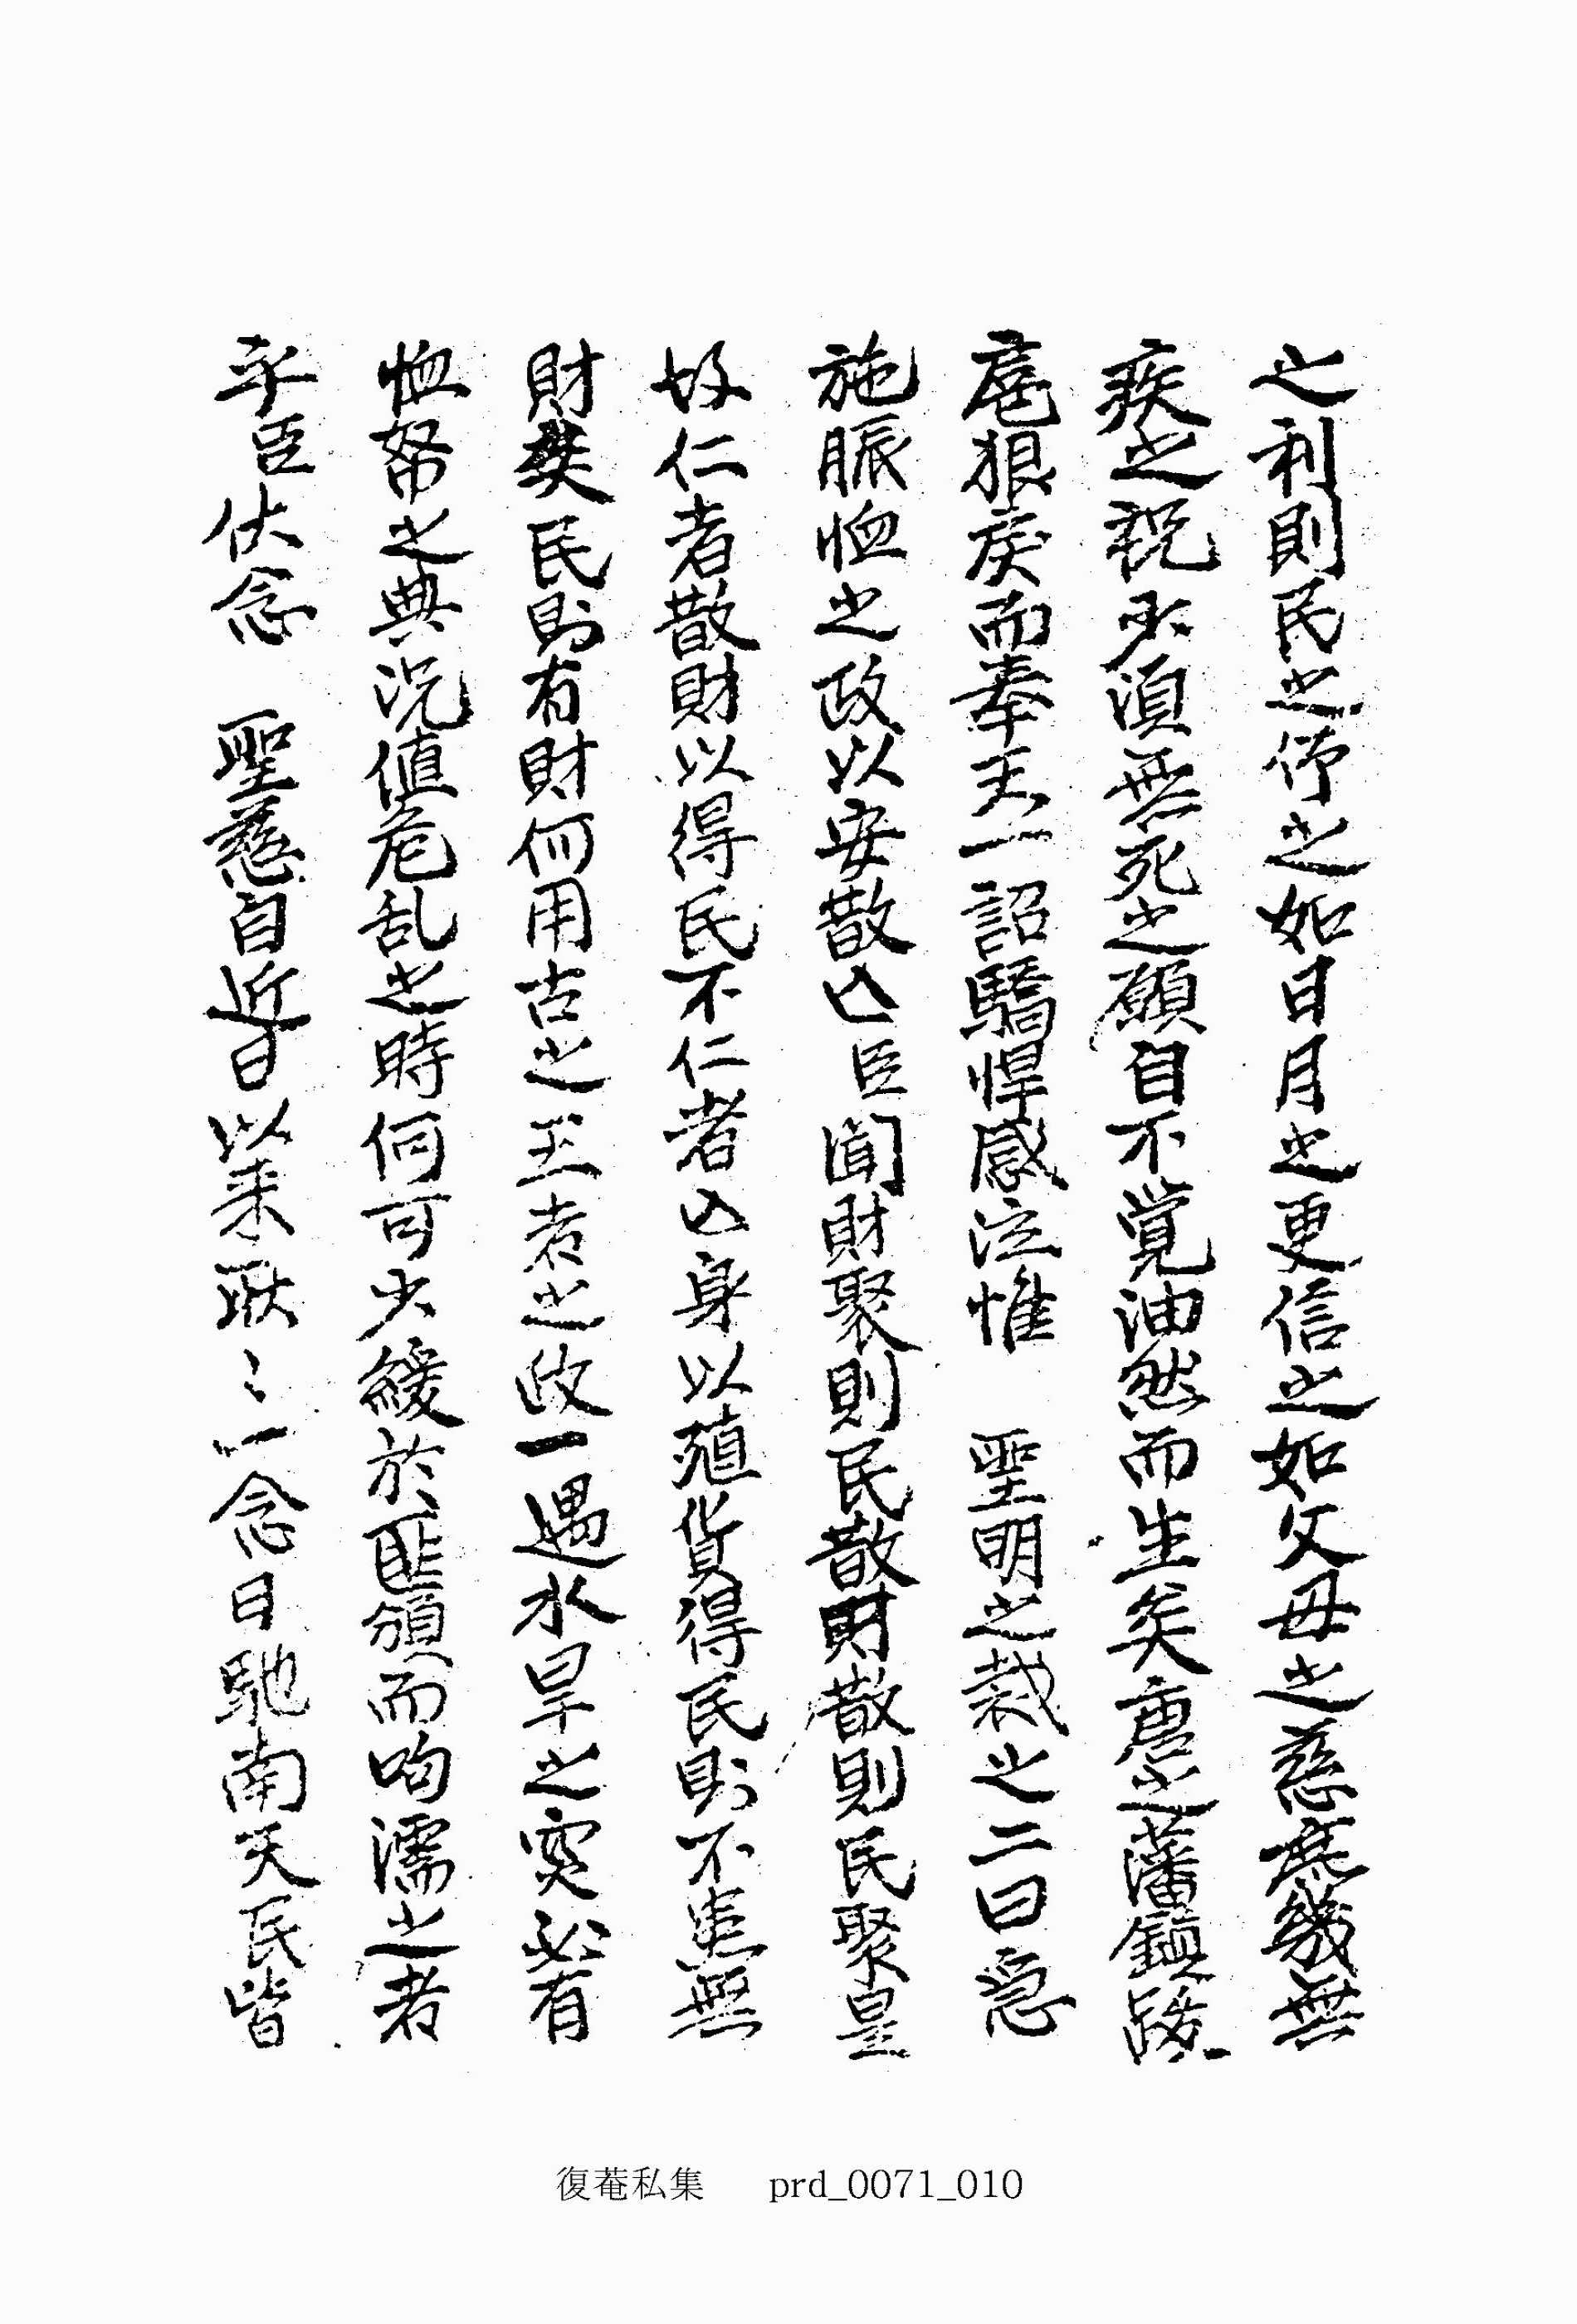 之利則民之仰之如日月之更信之如父母之慈庶幾無
疾之祝求須無死之願自不覚油然而生矣唐之藩鎮跋
扈狠戾而奉天一詔驕悍感泣惟 聖明之裁之二曰急
施賑恤之政以安散亡臣聞財聚則民散財散則民聚是
故仁者散財以得民不仁者亡身以殖貨得民則不患無
財失民則有財何用古之王者之政一遇水旱之灾必有
恤帑之典况值危乱之時何可少緩於匪頒而呴濡之者
乎臣伏念 聖慈自近日以来耿〻一念日馳南天民皆
復菴私集 prd_0071_010